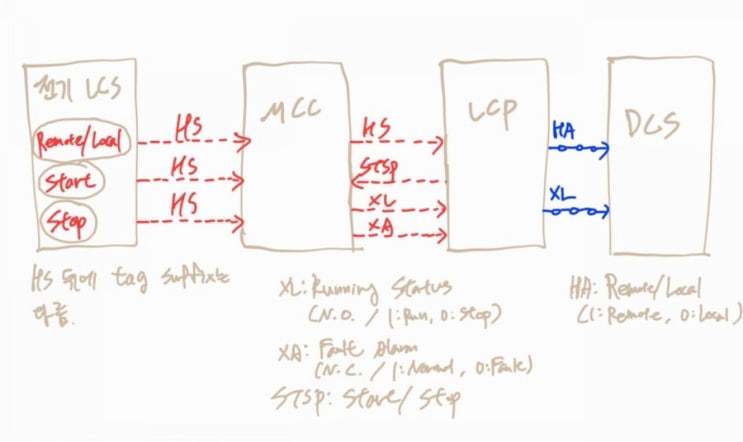 전기 LCS
Remote/Local
Start
Stop
HS
HS
HS
MCC
HS
STSP
XL
XA
LCP
HA
XL
DCS
HS 뒤에 tag suffix는
다름.
XL: Running Status
(N.O. / 1: Run, 0: Stop)
XA: Fault Alarm
(N.C. / 1: Normal, 0: Fault)
STSP: Start / Stop
HA: Remote/Local
(1: Remote, 0: Local)